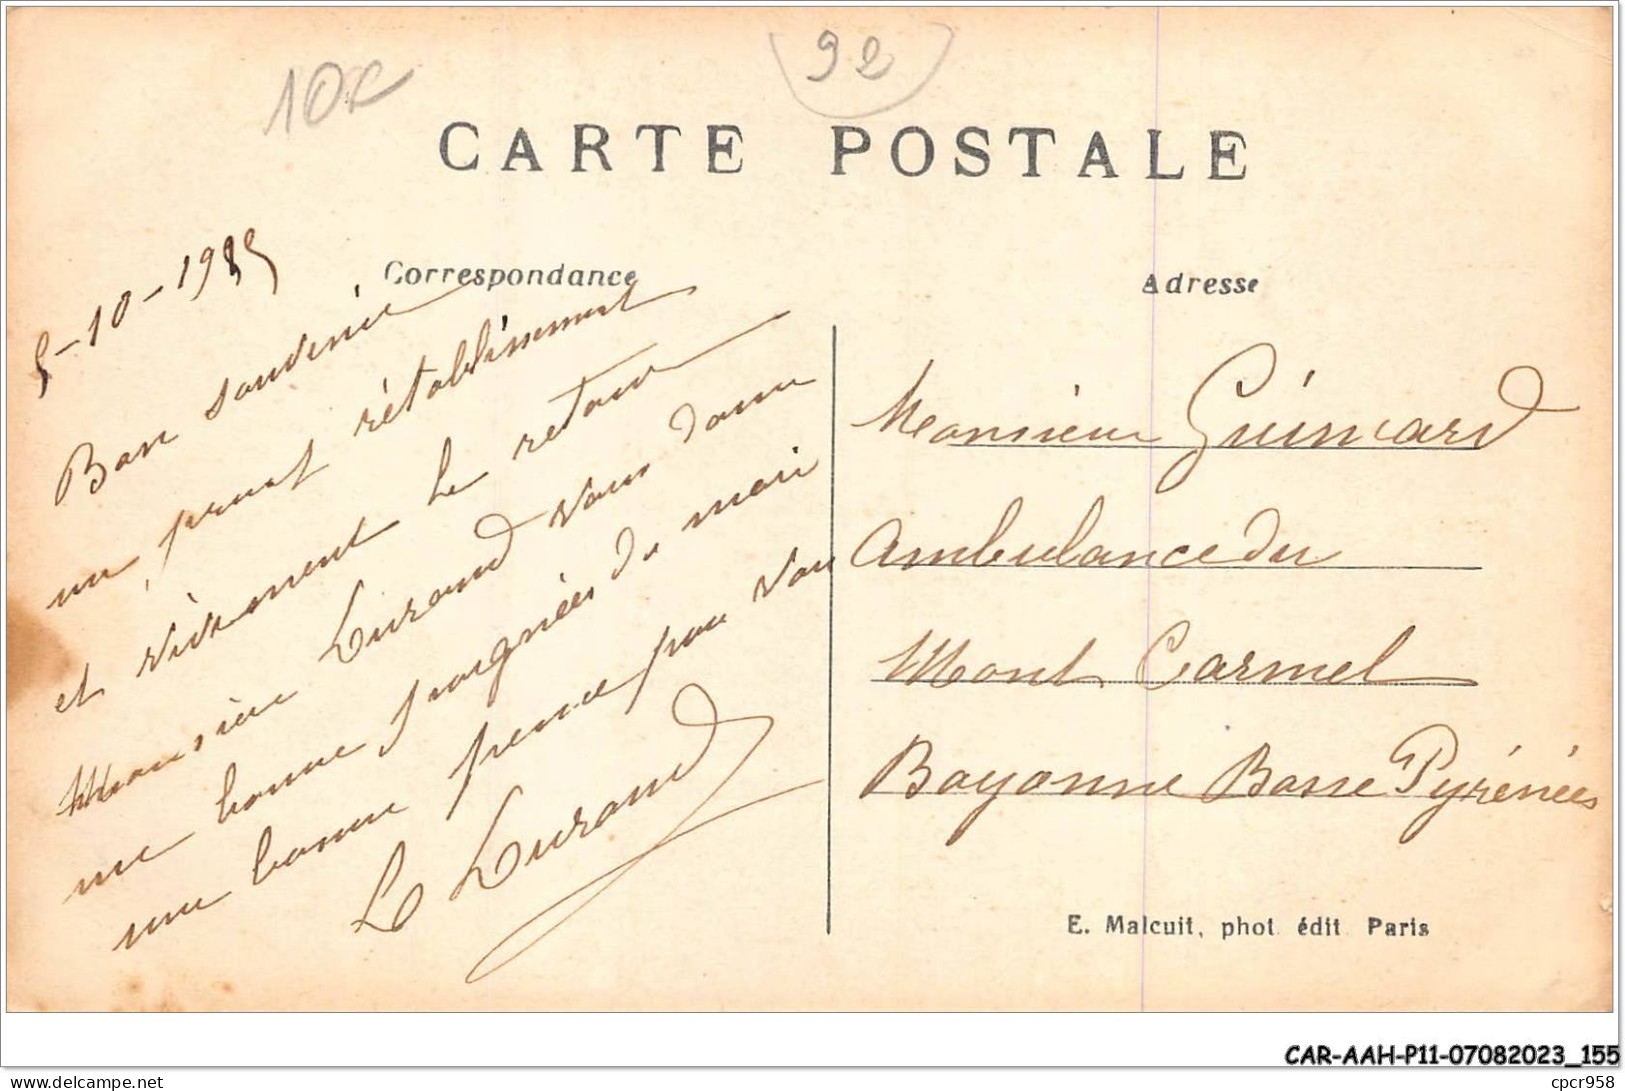 92
CARTE POSTALE
Correspondance
5-10-19
Bon souvenir
un prompt rétablissement
et vivement le retour
Monsieur Durand vous donne
une bonne poignées de main
une bonne pour vous
L Durand
Adresse
Monsieur Guimard
Ambulance du
Mont Carmel
Bayonne Basse Pyrénées
E. Malcuit, phot. édit. Paris
CAR-AAH-P11-07082023_155
delcampe.net
cpcr958